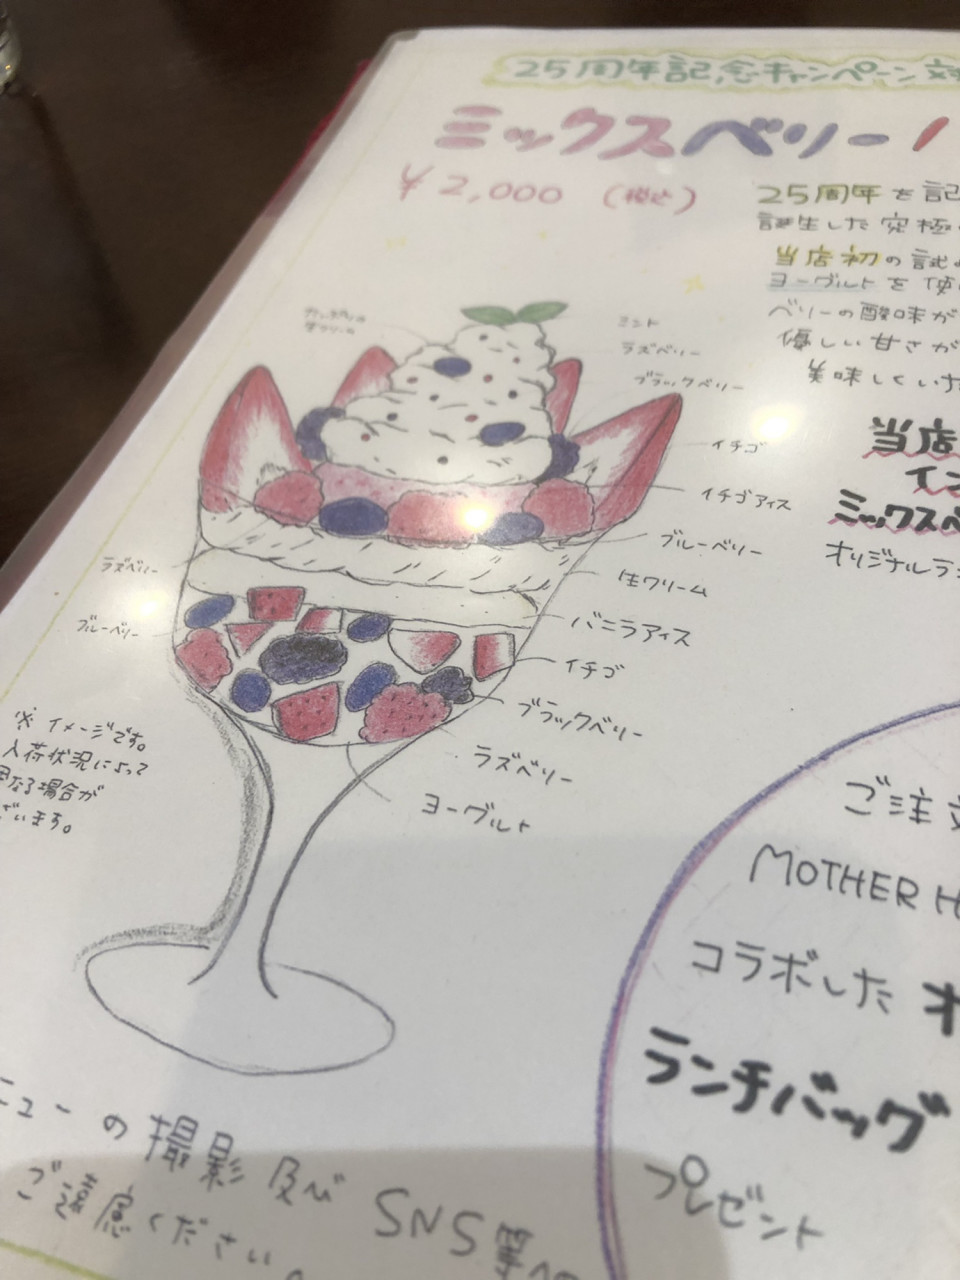 25周年記念キャンペーン対
ミックスベリー
¥2,000 (税込)
25周年を記
誕生した究極
当店初の試み
ヨーグルトを使
ベリーの酸味が
優しい甘さが
美味しくいた
当店
イン
ミックスベ
オリジナルラン
ミント
ラズベリー
ブラックベリー
イチゴ
イチゴアイス
ブルーベリー
生クリーム
バニラアイス
イチゴ
ブラックベリー
ラズベリー
ヨーグルト
ラズベリー
ブルーベリー
※イメージです。
入荷状況によって
異なる場合が
ざいます。
ご注文
MOTHER H
コラボした オ
ランチバッグ
プレゼント
ニューの撮影及び SNS
ご遠慮ください。